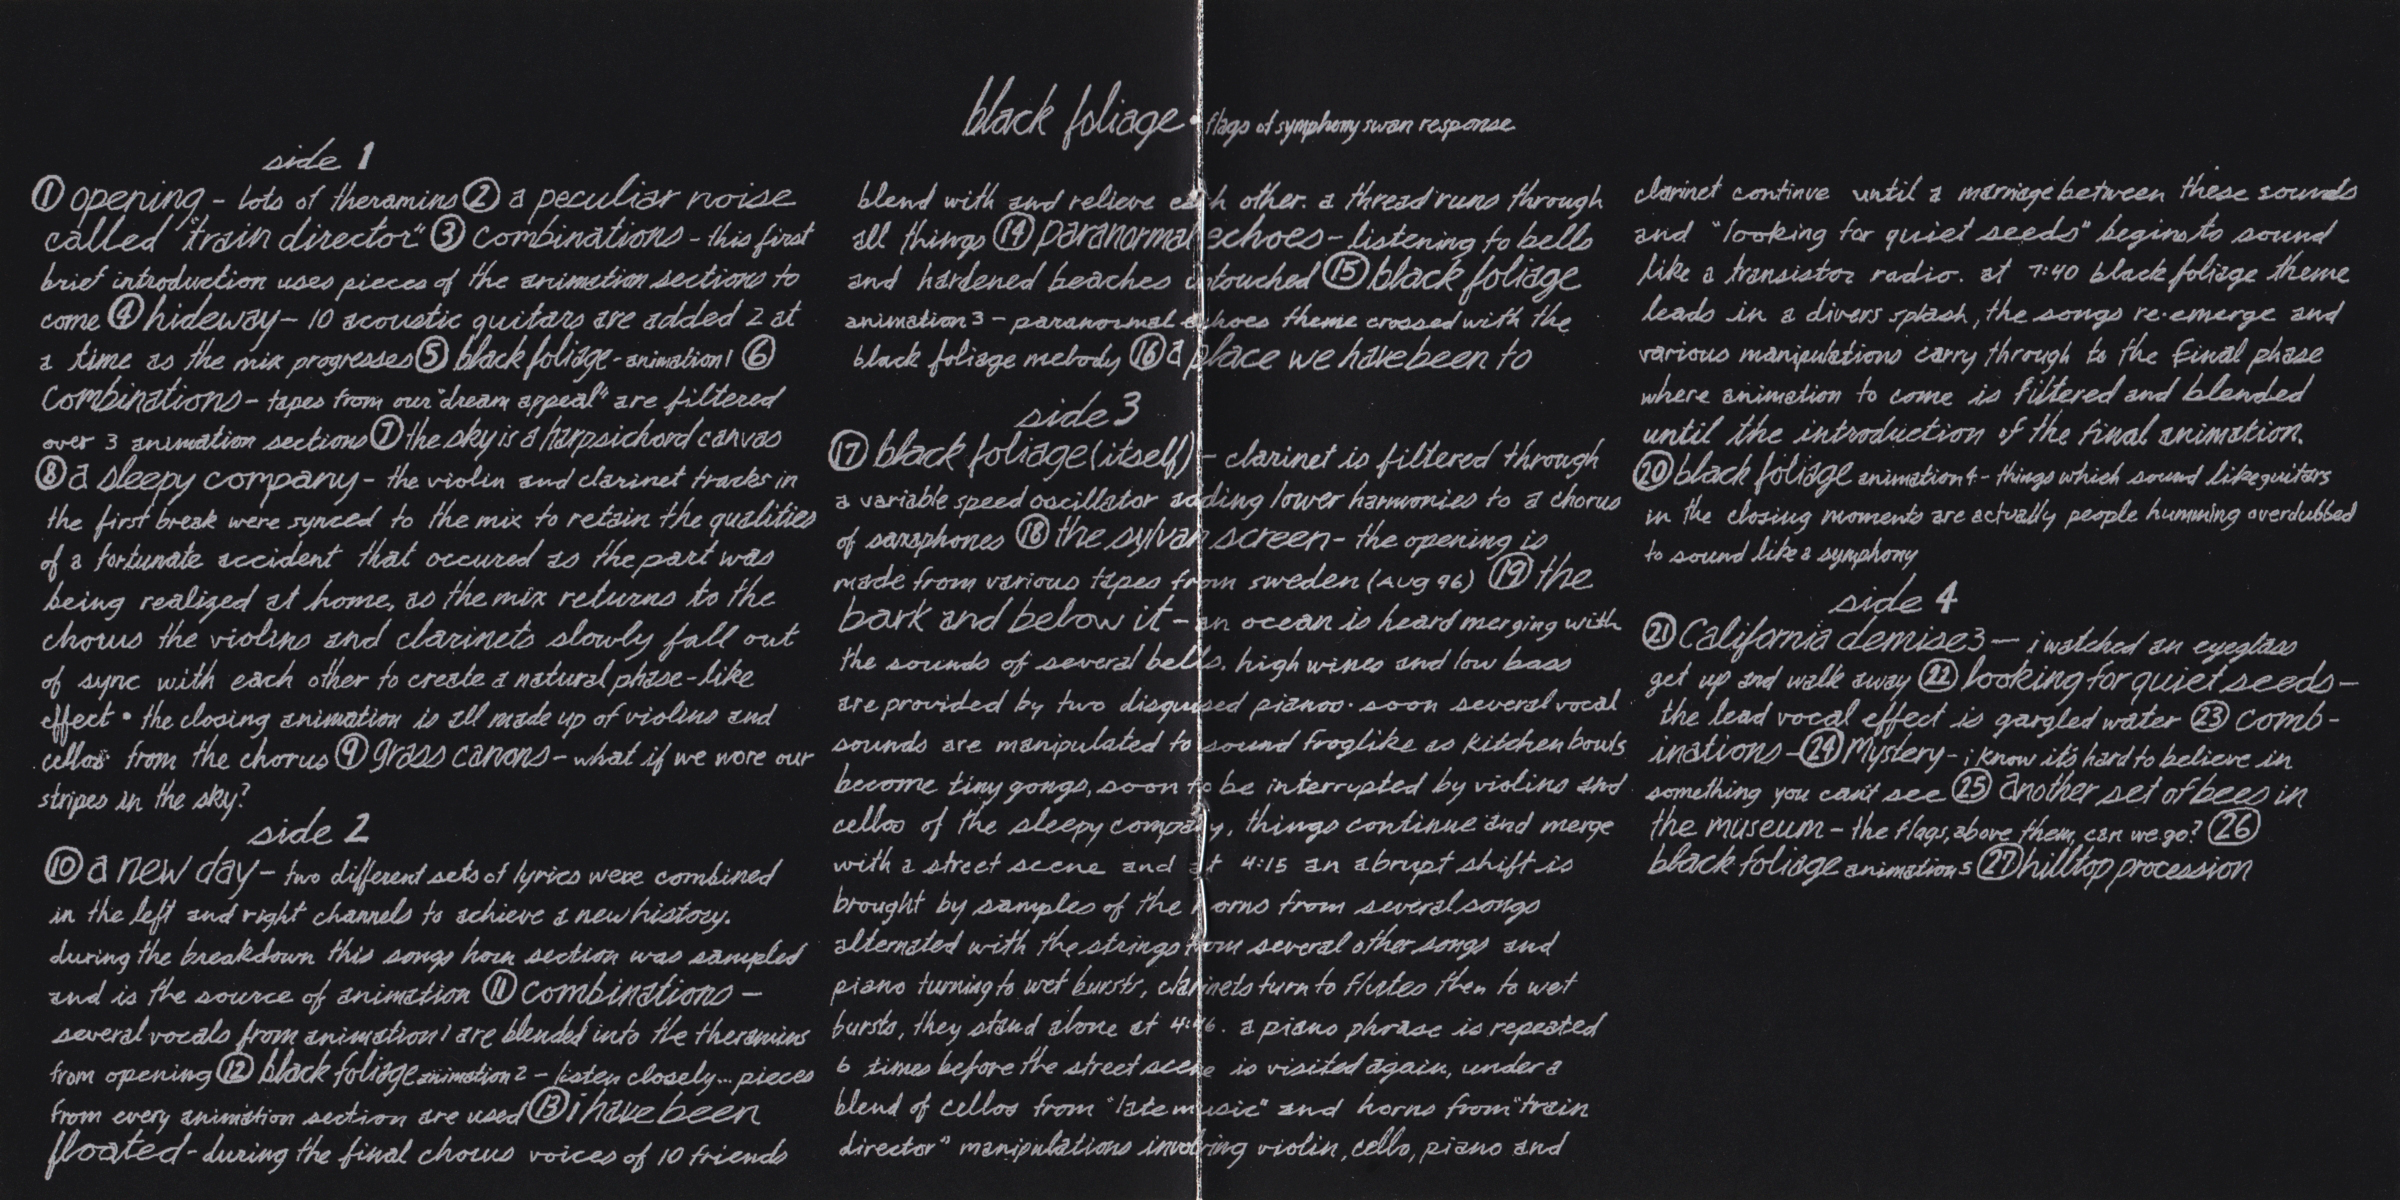 black foliage • flags of symphony swan response
side 1
① opening - lots of theramins ② a peculiar noise
called "train director" ③ combinations - this first
brief introduction uses pieces of the animation sections to
come ④ hideway - 10 acoustic guitars are added 2 at
a time as the mix progresses ⑤ black foliage - animation 1 ⑥
combinations - tapes from our "dream appeal" are filtered
over 3 animation sections ⑦ the sky is a harpsichord canvas
⑧ a sleepy company - the violin and clarinet tracks in
the first break were synced to the mix to retain the qualities
of a fortunate accident that occured as the part was
being realized at home, as the mix returns to the
chorus the violins and clarinets slowly fall out
of sync with each other to create a natural phase-like
effect • the closing animation is all made up of violins and
cellos from the chorus ⑨ grass canons - what if we wore our
stripes in the sky?
side 2
⑩ a new day - two different sets of lyrics were combined
in the left and right channels to achieve a new history.
during the breakdown this songs horn section was sampled
and is the source of animation ⑪ combinations -
several vocals from animation 1 are blended into the theramins
from opening ⑫ black foliage animation 2 - listen closely... pieces
from every animation section are used ⑬ i have been
floated - during the final chorus voices of 10 friends
blend with and relieve each other. a thread runs through
all things ⑭ paranormal echoes - listening to bells
and hardened beaches untouched ⑮ black foliage
animation 3 - paranormal echoes theme crossed with the
black foliage melody ⑯ a place we have been to
side 3
⑰ black foliage (itself) - clarinet is filtered through
a variable speed oscillator adding lower harmonies to a chorus
of saxaphones ⑱ the sylvan screen - the opening is
made from various tapes from sweden (aug 96) ⑲ the
bark and below it - an ocean is heard merging with
the sounds of several bells. high wines and low bass
are provided by two disguised pianos. soon several vocal
sounds are manipulated to sound froglike as kitchen bowls
become tiny gongs, soon to be interrupted by violins and
cellos of the sleepy company, things continue and merge
with a street scene and at 4:15 an abrupt shift is
brought by samples of the horns from several songs
alternated with the strings from several other songs and
piano turning to wet bursts, clarinets turn to flutes then to wet
bursts, they stand alone at 4:46. a piano phrase is repeated
6 times before the street scene is visited again, under a
blend of cellos from "late music" and horns from "train
director" manipulations involving violin, cello, piano and
clarinet continue until a marriage between these sounds
and "looking for quiet seeds" begins to sound
like a transistor radio. at 7:40 black foliage theme
leads in a divers splash, the songs re-emerge and
various manipulations carry through to the final phase
where animation to come is filtered and blended
until the introduction of the final animation.
⑳ black foliage animation 4 - things which sound like guitars
in the closing moments are actually people humming overdubbed
to sound like a symphony
side 4
㉑ California demise 3 - i watched an eyeglass
get up and walk away ㉒ looking for quiet seeds -
the lead vocal effect is gargled water ㉓ comb-
inations - ㉔ Mystery - i know it's hard to believe in
something you cant see ㉕ another set of bees in
the museum - the flags, above them, can we go? ㉖
black foliage animation 5 ㉗ hilltop procession